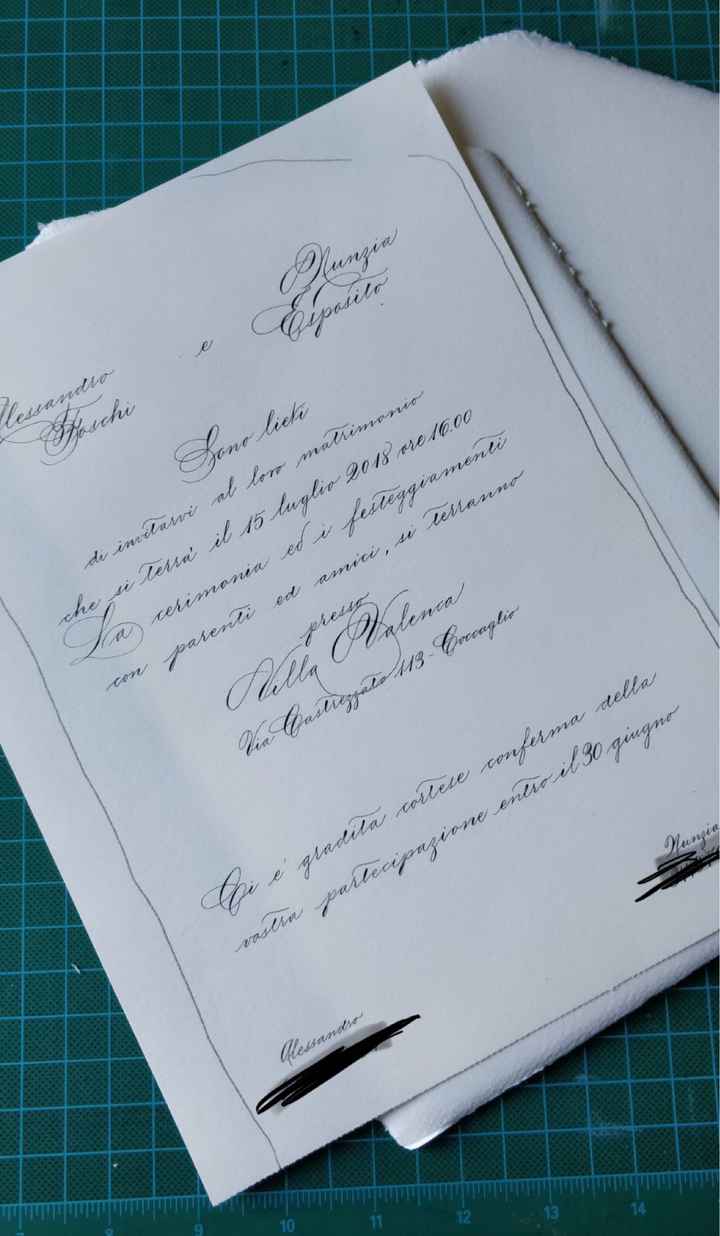 Alessandro
Foschi
e
Nunzia
Esposito
Sono lieti
di invitarvi al loro matrimonio
che si terrà il 15 luglio 2018 ore 16.00
La cerimonia ed i festeggiamenti
con parenti ed amici, si terranno
presso
Villa Valenca
Via Castrezzato 113 - Coccaglio
Ci e' gradita cortese conferma della
vostra partecipazione entro il 30 giugno
Nunzia
Alessandro
9 10 11 12 13 14